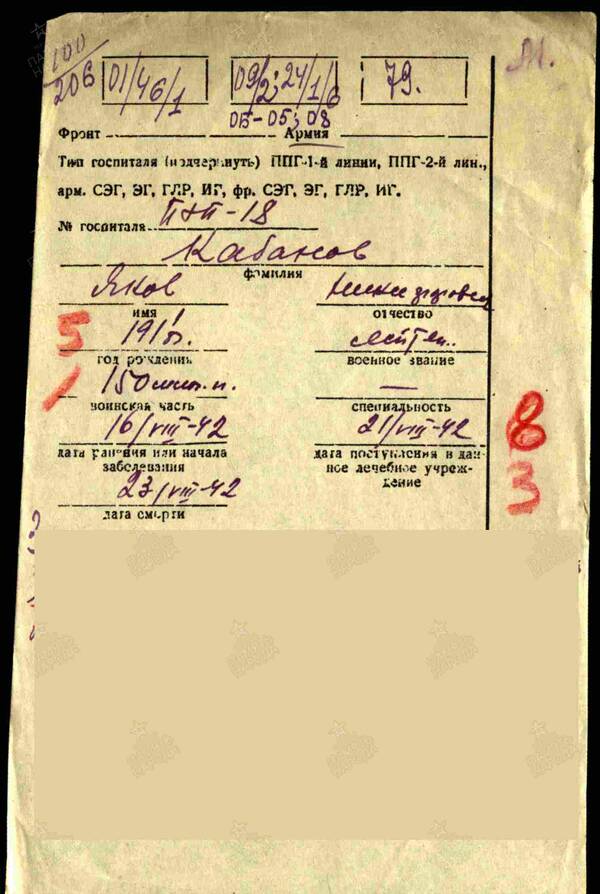 100
206
01/46/1
09/2; 24/1/6
79.
05-05; 08
М.
Фронт Армия
Тип госпиталя (подчеркнуть) ППГ-1-й линии, ППГ-2-й лин.,
арм. СЭГ, ЭГ, ГЛР, ИГ, фр. СЭГ, ЭГ, ГЛР, ИГ.
№ госпиталя ППГ-18
Кабанов
фамилия
Яков Никифорович
имя отчество
5
191 г. лейтен.
год рождения военное звание
1
150 —
воинская часть специальность
8
16/VIII-42 21/VIII-42
дата ранения или начала заболевания
дата поступления в данное лечебное учреждение
3
23/VIII-42
дата смерти